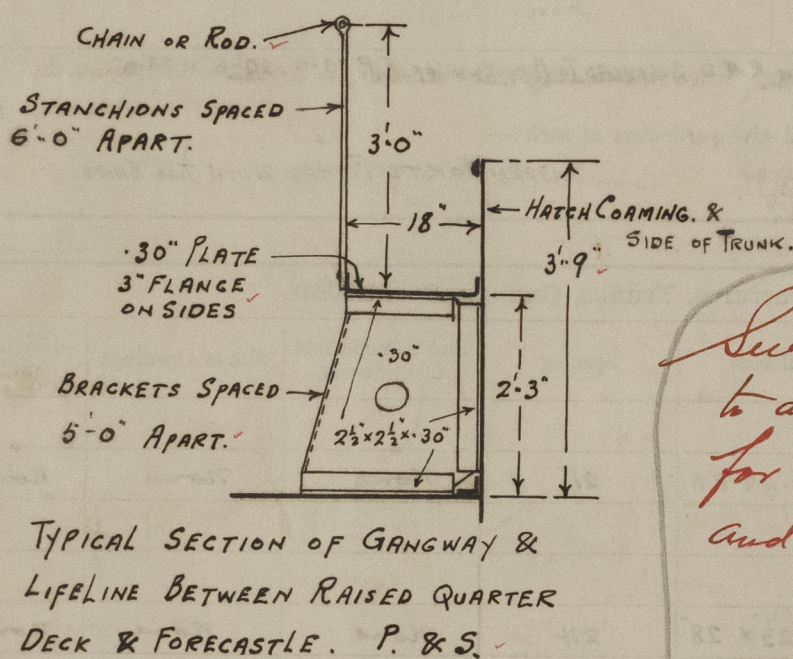 CHAIN OR ROD.
STANCHIONS SPACED
6'-0" APART.
3'-0"
18"
HATCH COAMING. &
SIDE OF TRUNK.
3'-9"
.30" PLATE
3" FLANGE
ON SIDES
.30"
BRACKETS SPACED
5'-0" APART.
2½"×2½"×.30"
2'-3"
to a
for
and
TYPICAL SECTION OF GANGWAY &
LIFELINE BETWEEN RAISED QUARTER
DECK & FORECASTLE. P. & S.